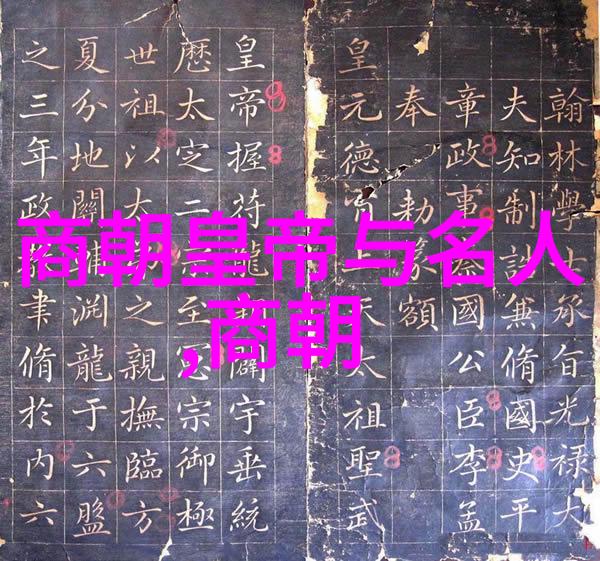 商朝皇帝与名人
,商朝
翰林學士承旨光祿大
夫知制誥兼脩國史平
章政事國公臣李孟
奉勅篆額
皇元德上天太祖聖武
皇帝握符龍闢宇垂統
厯太定二至宗御極
世祖以太之親撫臨方
夏分地關淵龍于六盤
之三年政聿脩於内六